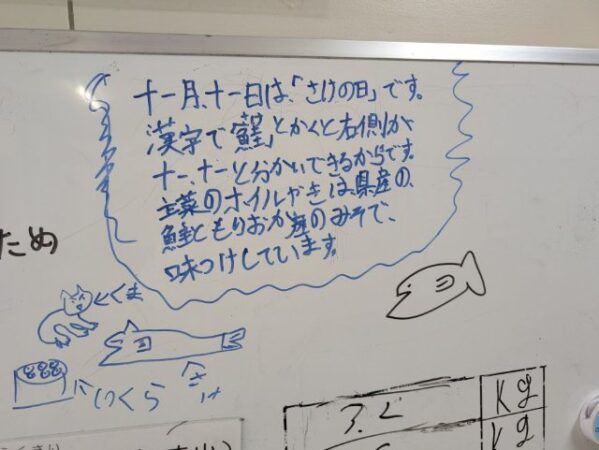 十一月、十一日は、「さけの日」です。
漢字で「鮭」とかくと右側が
十一、十一と分かいできるからです。
主菜のオイルやきは県産の、
鮭ともりおか産のみそで、
味つけしています。
ため
くま
いくら
さけ
3.2
Kg
Kg